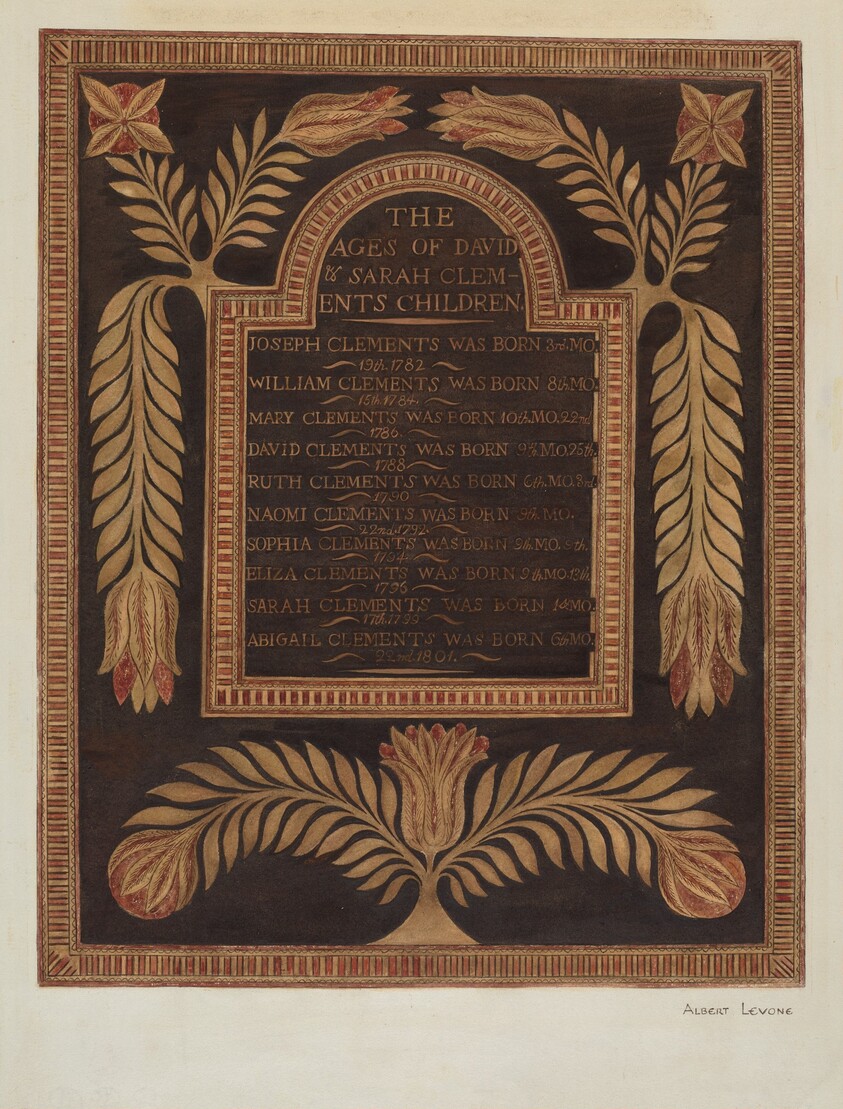 THE
AGES OF DAVID
& SARAH CLEM-
ENTS CHILDREN.
JOSEPH CLEMENTS WAS BORN 3rd.MO.
19th.1782
WILLIAM CLEMENTS WAS BORN 8th MO.
15th.1784.
MARY CLEMENTS WAS BORN 10th.MO.22nd
1786.
DAVID CLEMENTS WAS BORN 9th.MO.25th.
1788
RUTH CLEMENTS WAS BORN 6th.MO.3rd.
1790
NAOMI CLEMENTS WAS BORN 9th MO.
22nd.1792.
SOPHIA CLEMENTS WAS BORN 9th.MO.5th.
1794.
ELIZA CLEMENTS WAS BORN 9th.MO.13th.
1796
SARAH CLEMENTS WAS BORN 1st MO.
17th.1799
ABIGAIL CLEMENTS WAS BORN 6th MO.
22nd 1801.
ALBERT LEVONE